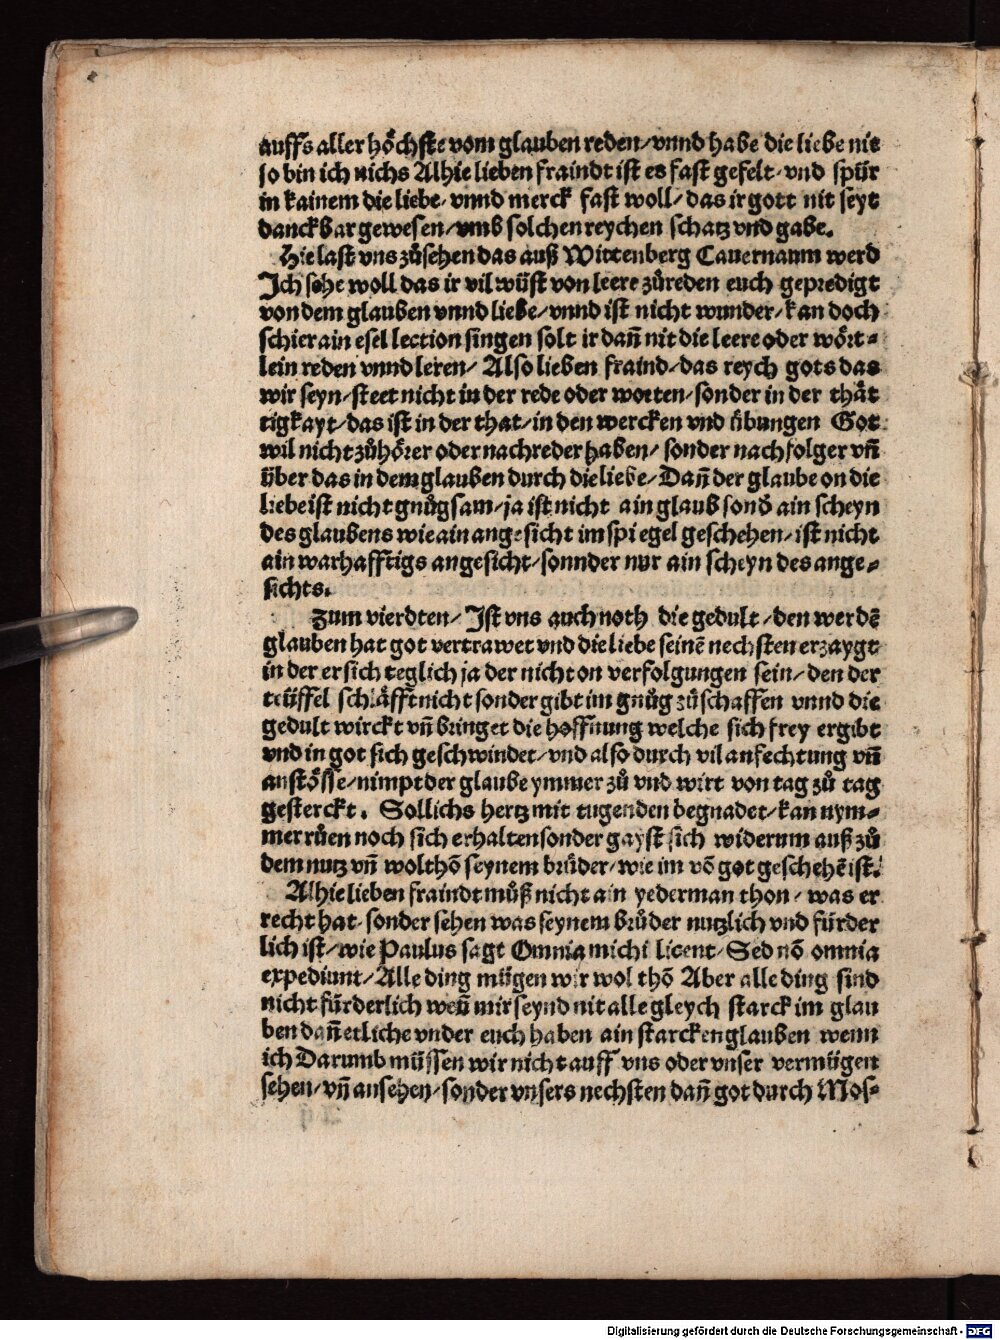 auffs aller höchste vom glauben reden/vnnd habe die liebe nit
so bin ich nichs Alhie lieben fraindt ist es fast gefelt/vnd spür
in kainem die liebe/vnnd merck fast woll/das ir gott nit seyt
danckbar gewesen/vmb solchen reychen schatz vnd gabe.
Hie last vns zůsehen das auß Wittenberg Cauernaum werd
Ich sehe woll das ir vil wüst von leere zůreden euch gepredigt
von dem glauben vnnd liebe/vnnd ist nicht wunder/kan doch
schier ain esel lection singen solt ir dañ nit die leere oder wört⸗
lein reden vnnd leren/ Also lieben fraind/das reych gots das
wir seyn/steet nicht in der rede oder worten/sonder in der thät
tigkayt/das ist in der that/in den wercken vnd übungen Got
wil nicht zůhörer oder nachreder haben/ sonder nachfolger vñ
über das in dem glauben durch die liebe/Dañ der glaube on die
liebe ist nicht gnůgsam/ja ist nicht ain glaub sonď ain scheyn
des glaubens wie ain angesicht im spiegel geschehen/ist nicht
ain warhafftigs angesicht/sonnder nur ain scheyn des ange⸗
sichts.
Zum vierdten/ Ist vns auch noth die gedult/den werdē
glauben hat got vertrawet vnd die liebe seinē nechsten erzaygt
in der er sich teglich ja der nicht on verfolgungen sein/den der
teüffel schläfft nicht sonder gibt im gnůg zůschaffen vnnd die
gedult wirckt vñ bringet die hoffnung welche sich frey ergibt
vnd in got sich geschwindet/vnd also durch vil anfechtung vñ
anstösse/nimpt der glaube ymmer zů vnd wirt von tag zů tag
gesterckt. Sollichs hertz mit tugenden begnadet/kan nym⸗
mer růen noch sich erhalten sonder gayst sich widerum auß zů
dem nutz vñ wolthō seynem brüder/wie im vō got geschehē ist.
Alhie lieben fraindt můß nicht ain yederman thon/ was er
recht hat/sonder sehen was seynem brůder nutzlich vnd fürder
lich ist/wie Paulus sagt Omnia michi licent/Sed nō omnia
expediunt/Alle ding mügen wir wol thō Aber alle ding sind
nicht fürderlich weñ mir seynd nit alle gleych starck im glau
ben dañ etliche vnder euch haben ain starcken glauben wenn
ich Darumb müssen wir nicht auff vns oder vnser vermügen
sehen/vñ ansehen/sonder vnsers nechsten dañ got durch Mos⸗
Digitalisierung gefördert durch die Deutsche Forschungsgemeinschaft - DFG